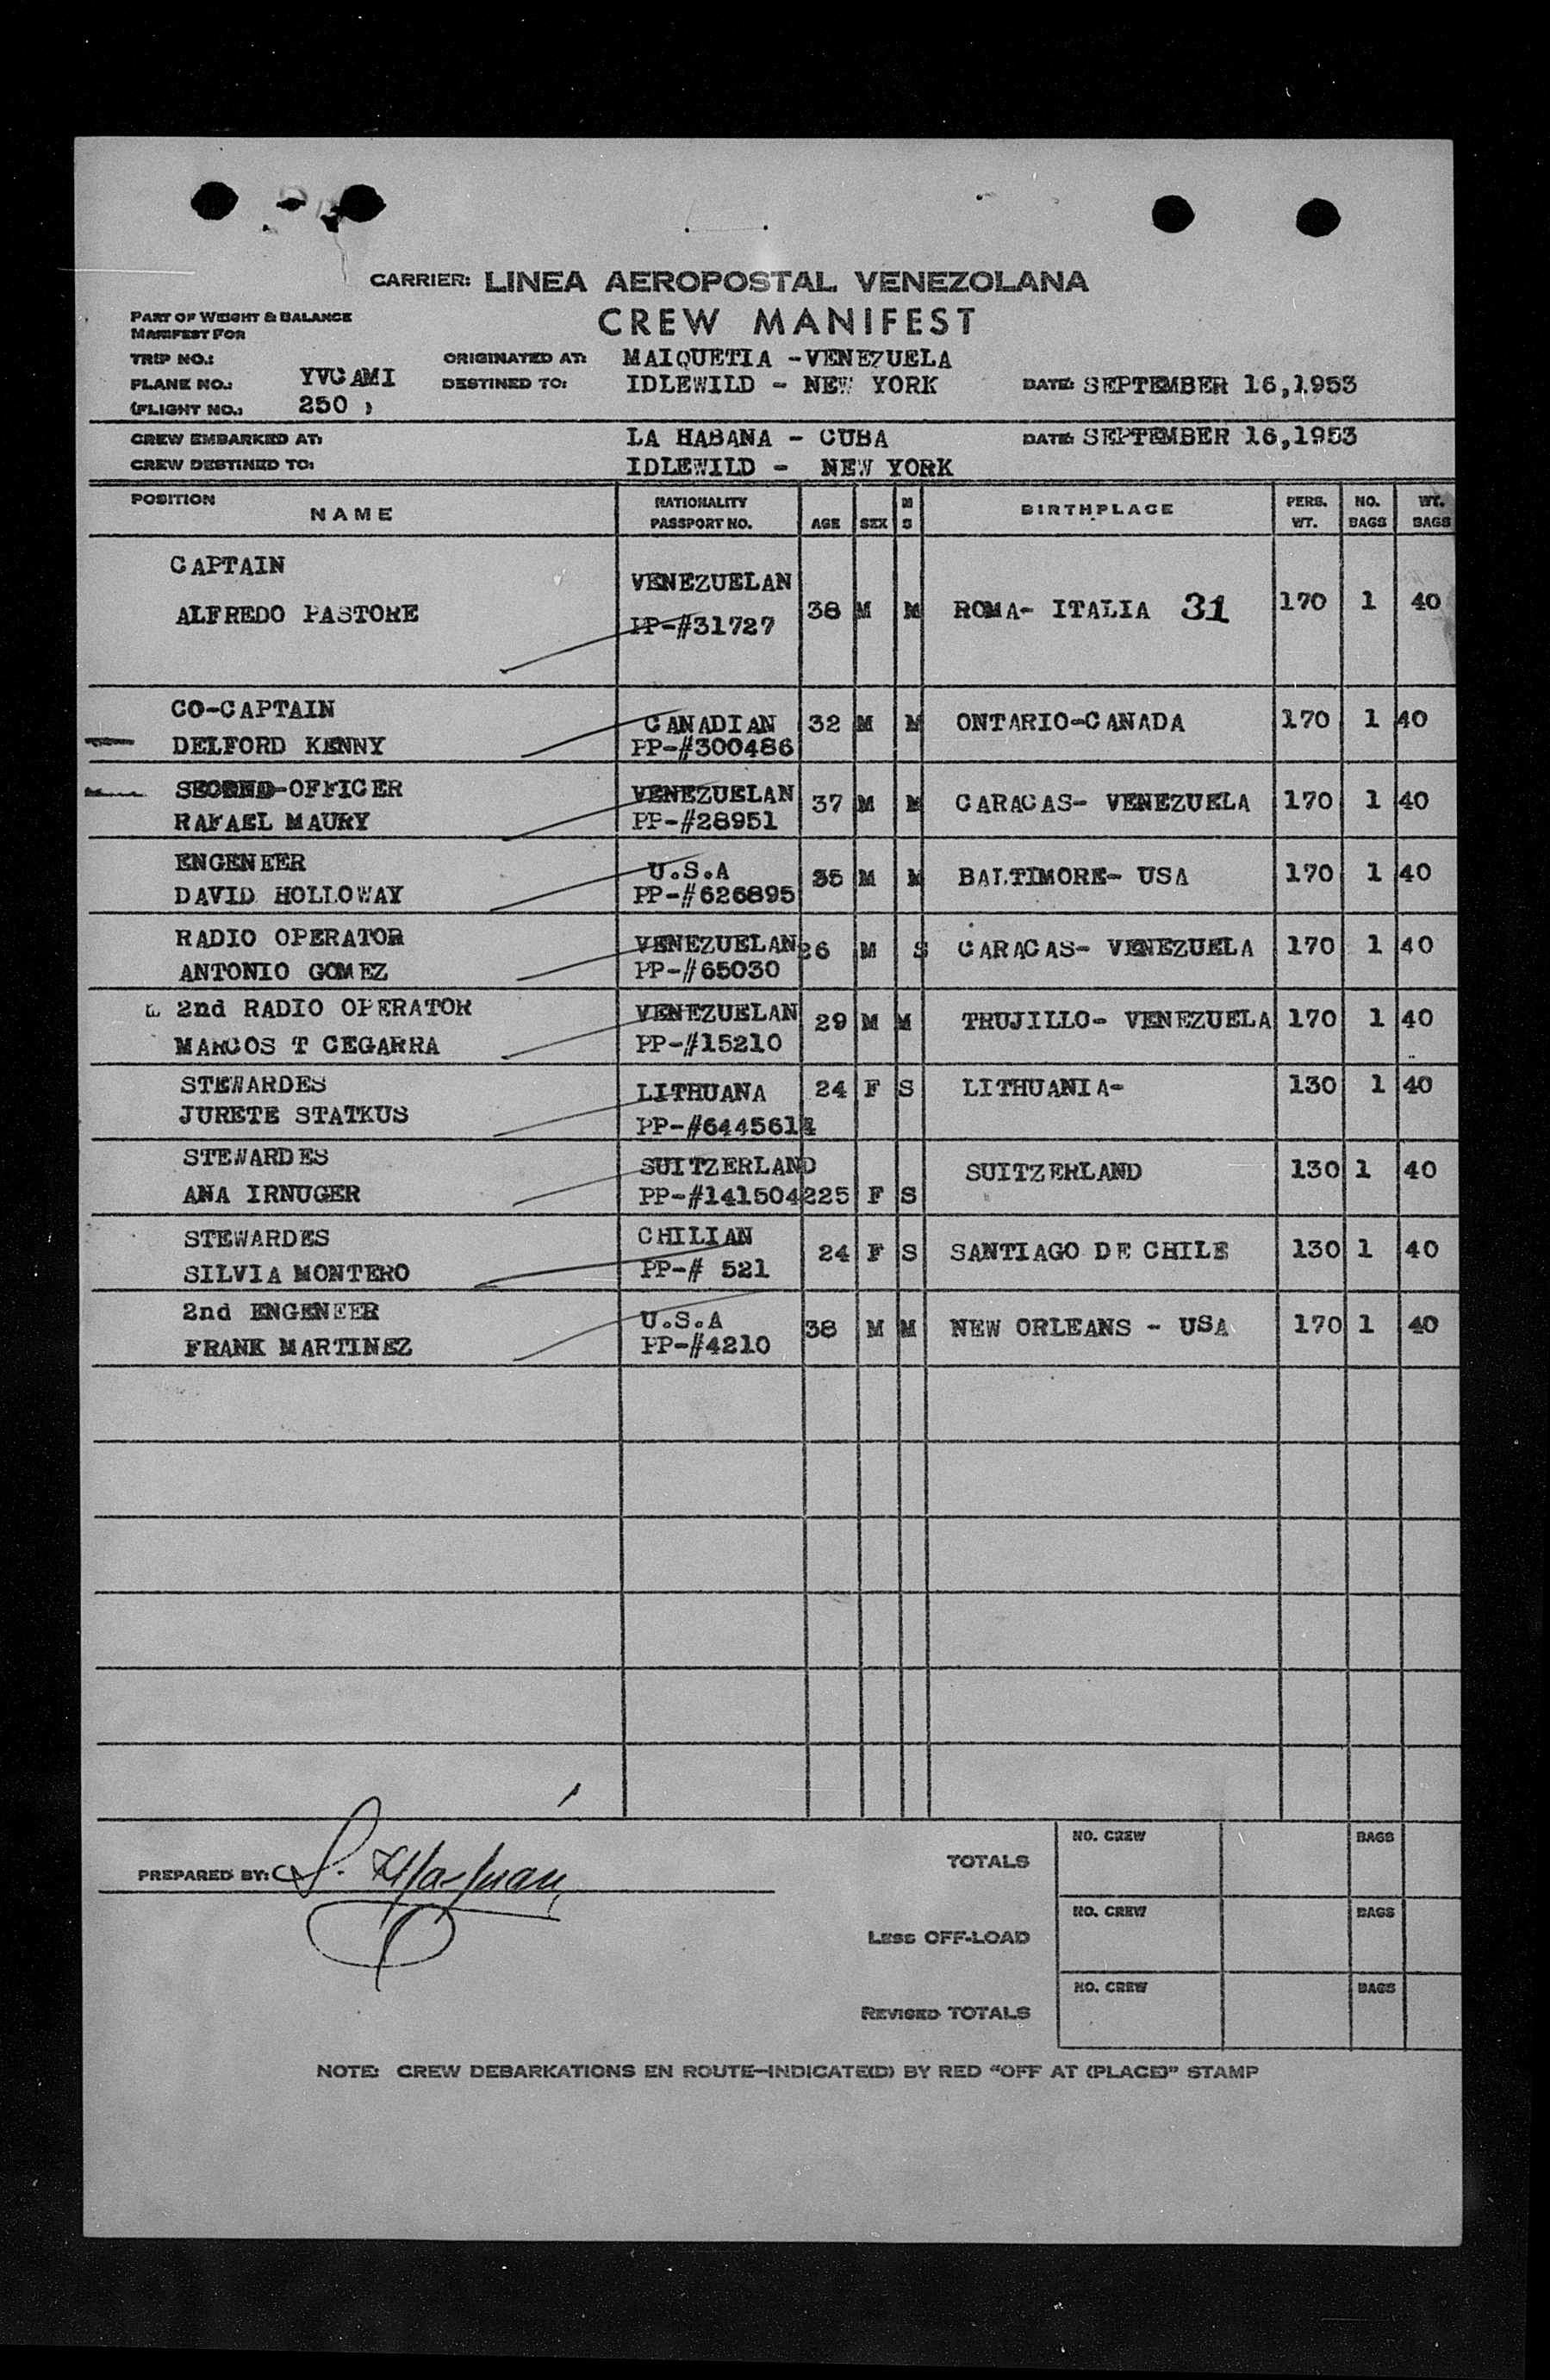 CARRIER: LINEA AEROPOSTAL VENEZOLANA
PART OF WEIGHT & BALANCE
MANIFEST FOR
CREW MANIFEST
TRIP NO.: ORIGINATED AT: MAIQUETIA -VENEZUELA
PLANE NO.: YVCAMI DESTINED TO: IDLEWILD - NEW YORK DATE: SEPTEMBER 16,1953
(FLIGHT NO.: 250 )
CREW EMBARKED AT: LA HABANA - CUBA DATE: SEPTEMBER 16,1953
CREW DESTINED TO: IDLEWILD - NEW YORK
POSITION NAME NATIONALITY PASSPORT NO. AGE SEX M S BIRTHPLACE PERS. WT. NO. BAGS WT. BAGS
CAPTAIN VENEZUELAN
ALFREDO PASTORE PP-#31727 38 M M ROMA- ITALIA 31 170 1 40
CO-CAPTAIN CANADIAN 32 M M ONTARIO-CANADA 170 1 40
DELFORD KENNY PP-#300486
SECOND-OFFICER VENEZUELAN 37 M M CARACAS- VENEZUELA 170 1 40
RAFAEL MAURY PP-#28951
ENGENEER U.S.A 35 M M BALTIMORE- USA 170 1 40
DAVID HOLLOWAY PP-#626895
RADIO OPERATOR VENEZUELAN 26 M S CARACAS- VENEZUELA 170 1 40
ANTONIO GOMEZ PP-#65030
E 2nd RADIO OPERATOR VENEZUELAN 29 M M TRUJILLO- VENEZUELA 170 1 40
MARCOS T CEGARRA PP-#15210
STEWARDES LITHUANA 24 F S LITHUANIA- 130 1 40
JURETE STATKUS PP-#6445614
STEWARDES SUITZERLAND SUITZERLAND 130 1 40
ANA IRNUGER PP-#141504225 F S
STEWARDES CHILIAN 24 F S SANTIAGO DE CHILE 130 1 40
SILVIA MONTERO PP-# 521
2nd ENGENEER U.S.A 38 M M NEW ORLEANS - USA 170 1 40
FRANK MARTINEZ PP-#4210
NO. CREW BAGS
PREPARED BY: TOTALS
NO. CREW BAGS
LESS OFF-LOAD
NO. CREW BAGS
REVISED TOTALS
NOTE: CREW DEBARKATIONS EN ROUTE—INDICATE(D) BY RED "OFF AT (PLACE)" STAMP